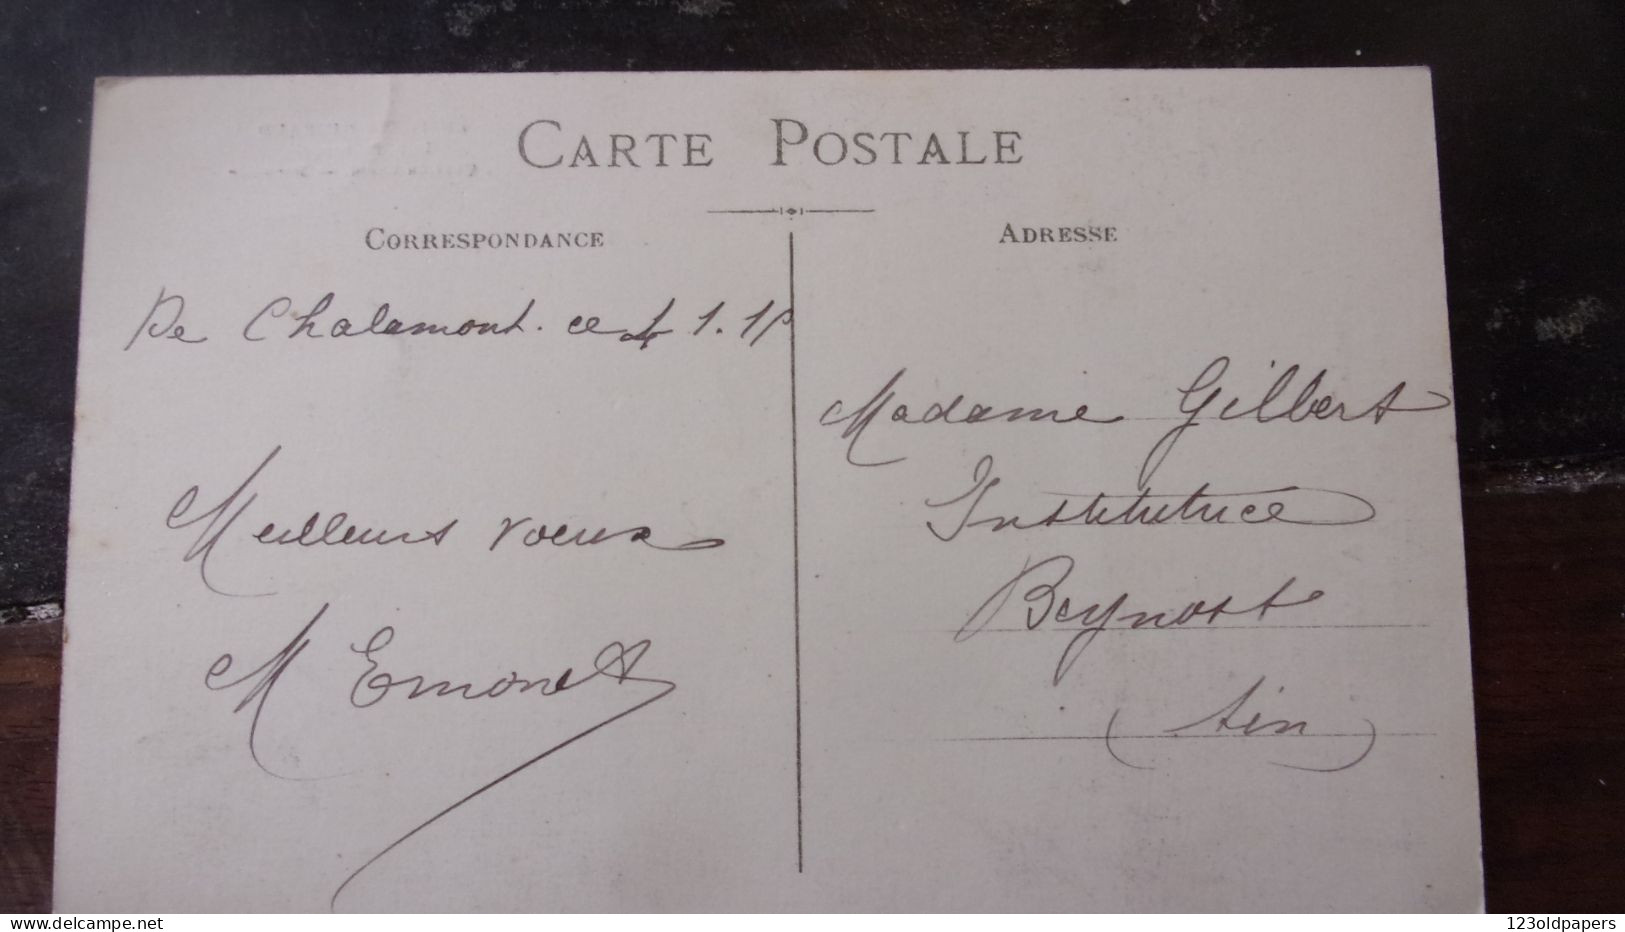 CARTE POSTALE
CORRESPONDANCE
De Chalamont. ce 4 1. 1
Meilleurs voeux
M Emonet
ADRESSE
Madame Gilbert
Institutrice
Beynost
(Ain)
www.delcampe.net
123oldpapers